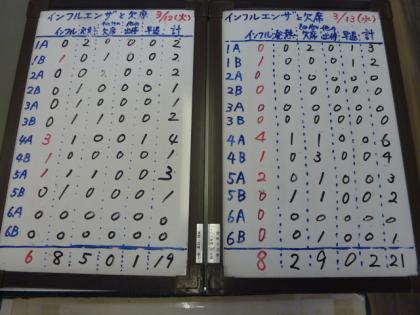 インフルエンザと欠席 3/12(火)
インフル 発熱 欠席 出停 早退 計
1A 0 2 0 0 0 2
1B 1 0 1 0 0 2
2A 0 0 0 0 0
2B 0 1 0 0 0 1
3A 0 1 0 0 0 1
3B 0 1 1 0 0 2
4A 3 0 0 1 4
4B 1 0 0 0 0 1
5A 1 1 1 0 0 3
5B 0 1 0 0 0 1
6A 0 0 0 0 0 0
6B 0 0 0 0 0 0
6 8 5 0 1 19
インフルエンザと欠席 3/13(水)
インフル 発熱 欠席 出停 早退 計
1A 0 0 2 0 1 3
1B 1 0 0 0 1 2
2A 0 0 0 0 0 0
2B 0 0 0 0 0 0
3A 0 0 0 0 0 0
3B 0 0 0 0 0 0
4A 4 1 1 0 0 6
4B 1 0 3 0 0 4
5A 2 0 1 0 0 3
5B 0 1 1 0 0 2
6A 0 0 0 0 0 0
6B 0 0 1 0 0 1
8 2 9 0 2 21